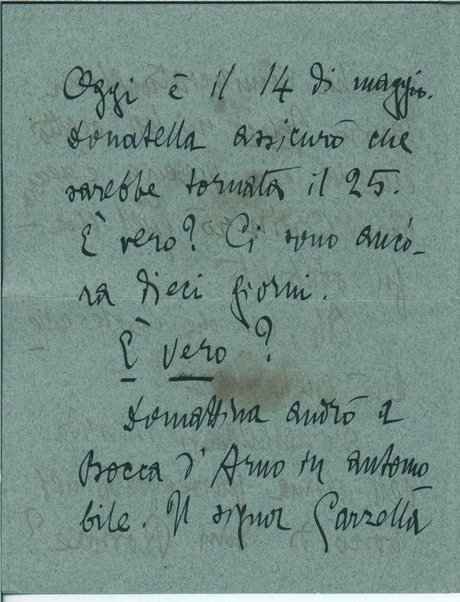 Oggi è il 14 di maggio.
Donatella assicurò che
sarebbe tornata il 25.
È vero? Ci sono anco-
ra dieci giorni.
È vero?
Domattina andrò a
Bocca d'Arno in automo
bile. Il signor Garzetta